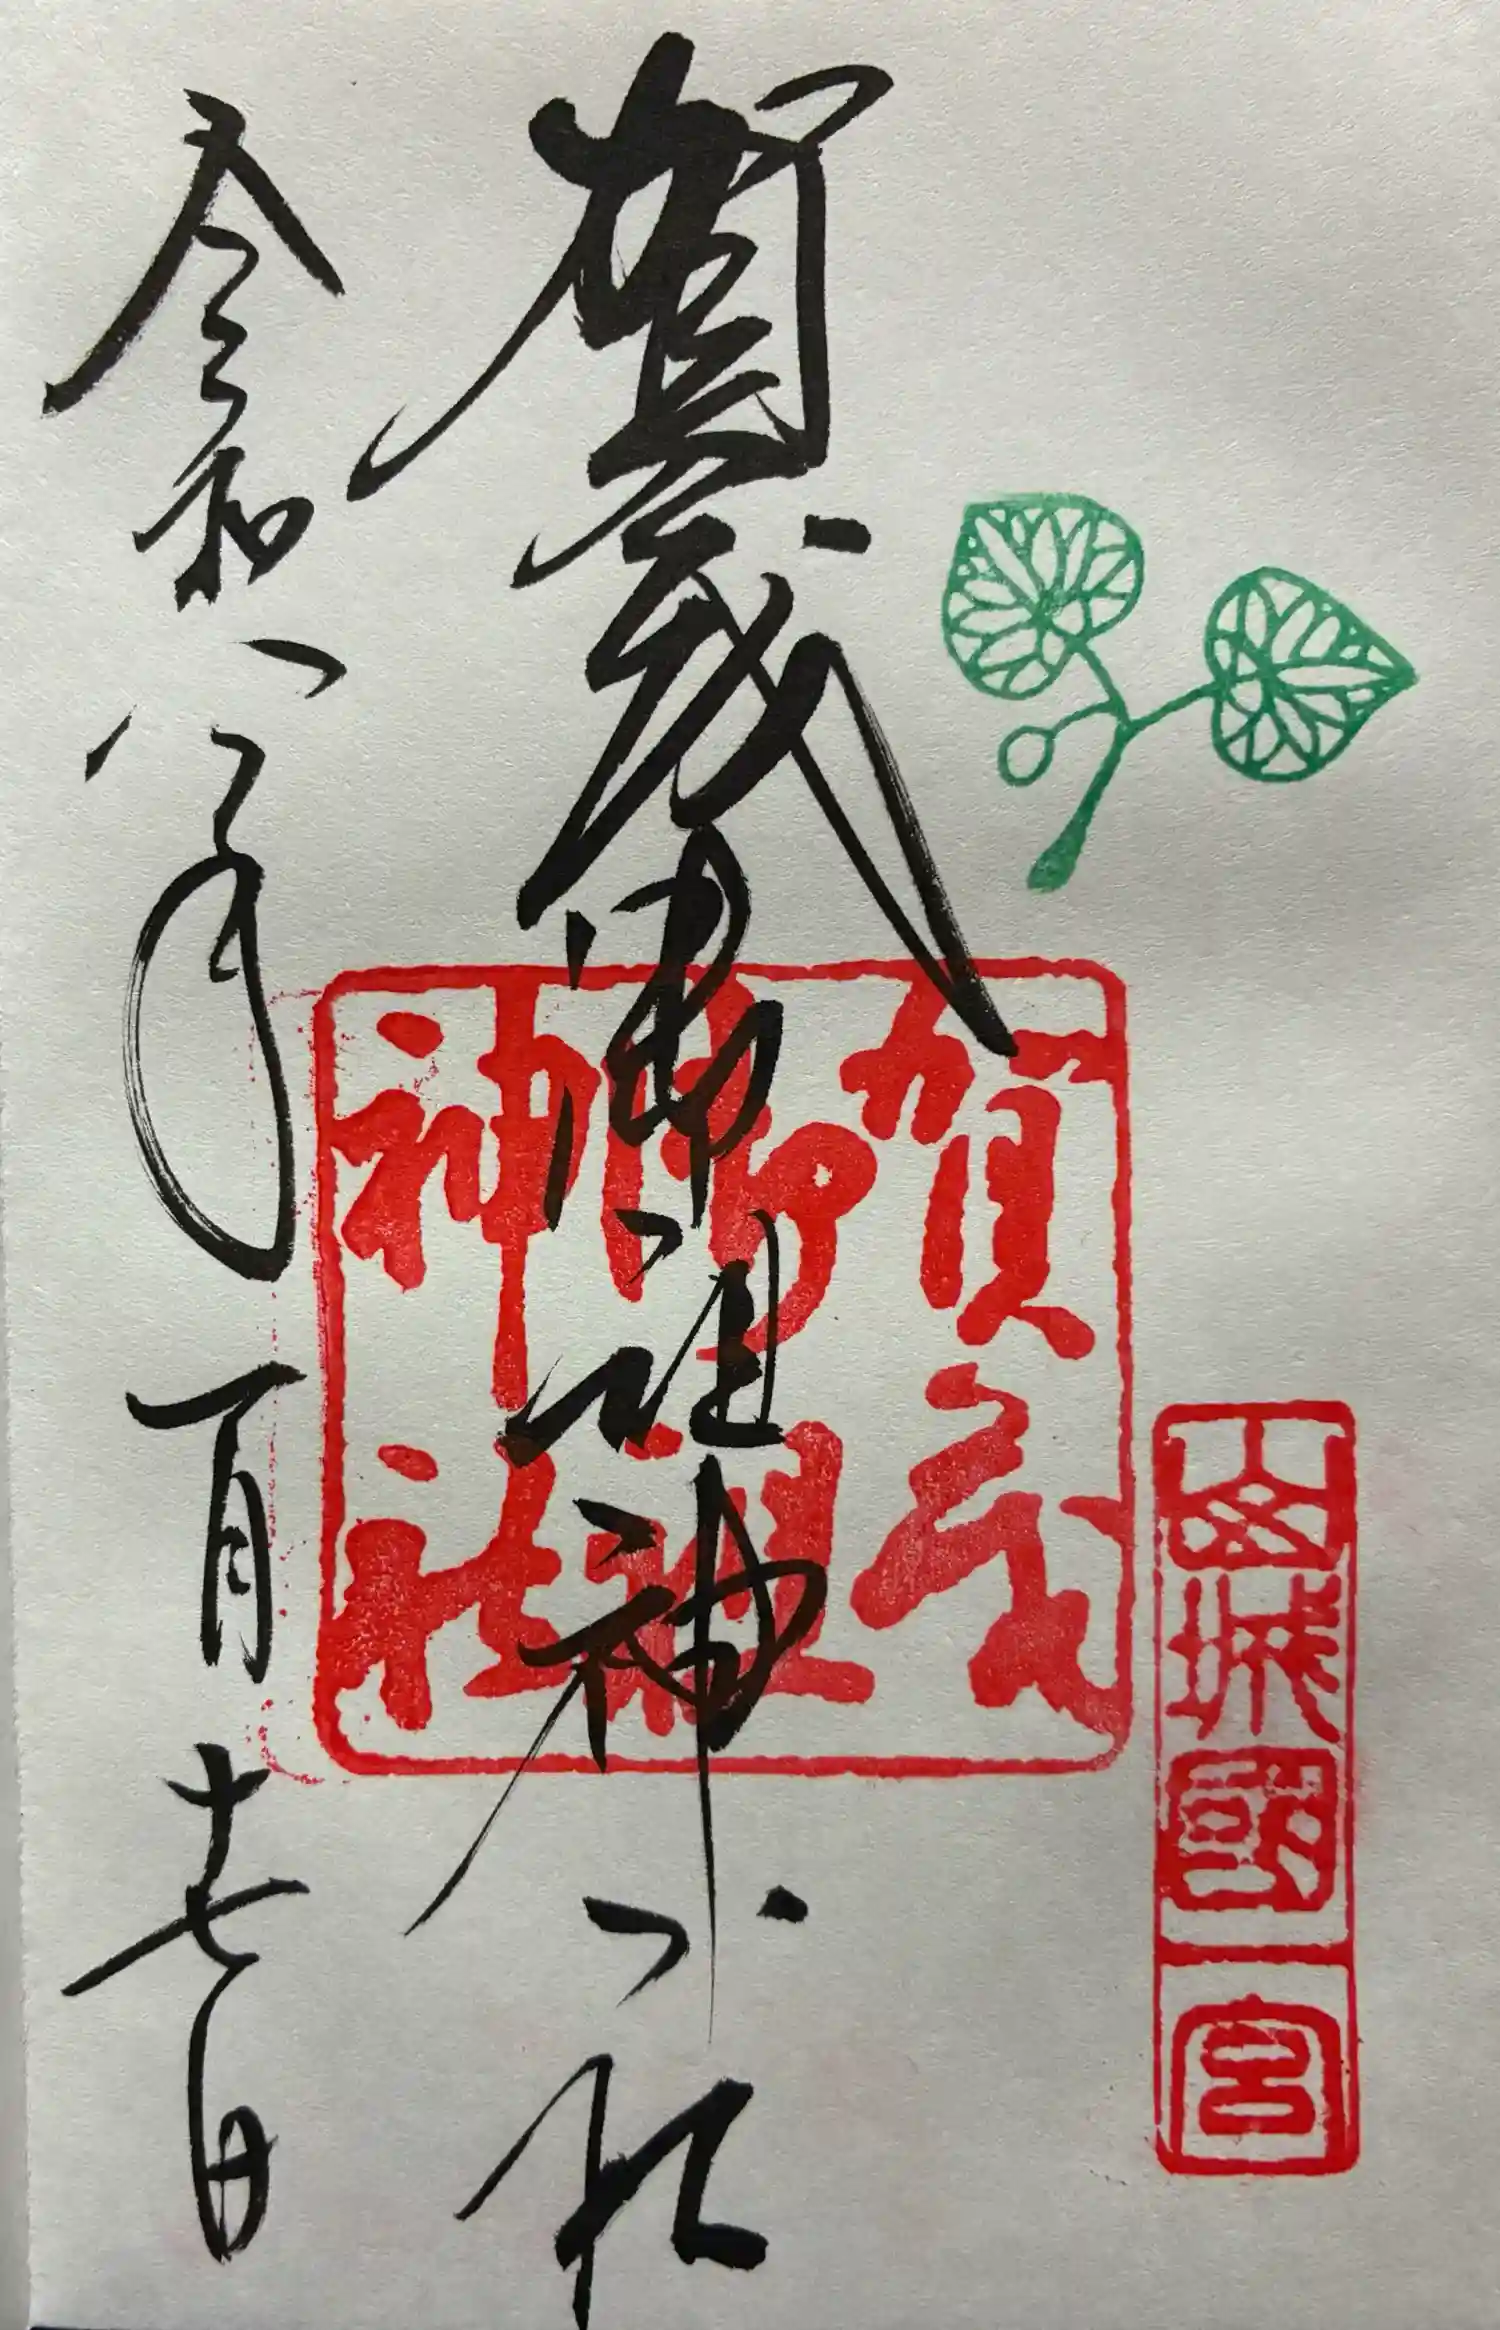 山城國一宮
賀茂御祖神社
賀茂御祖神社
令和八年一月十七日